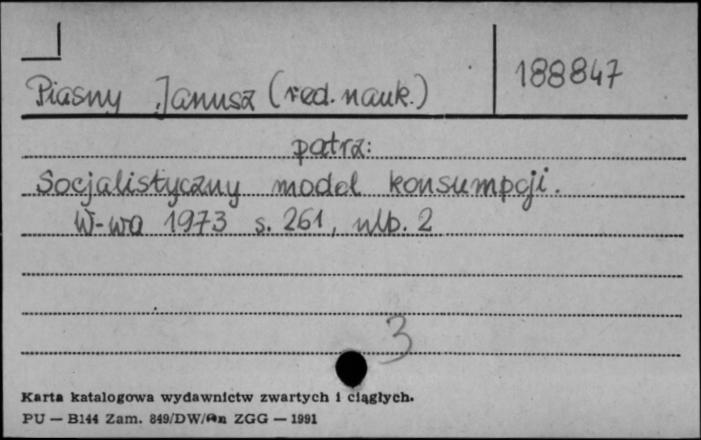 Piasny Janusz (red. nauk.)
188847
patrz:
Socjalistyczny model konsumpcji.
W-wa 1973 s. 261, nlb. 2
3
Karta katalogowa wydawnictw zwartych i ciągłych.
PU — B144 Zam. 849/DW/An ZGG — 1991